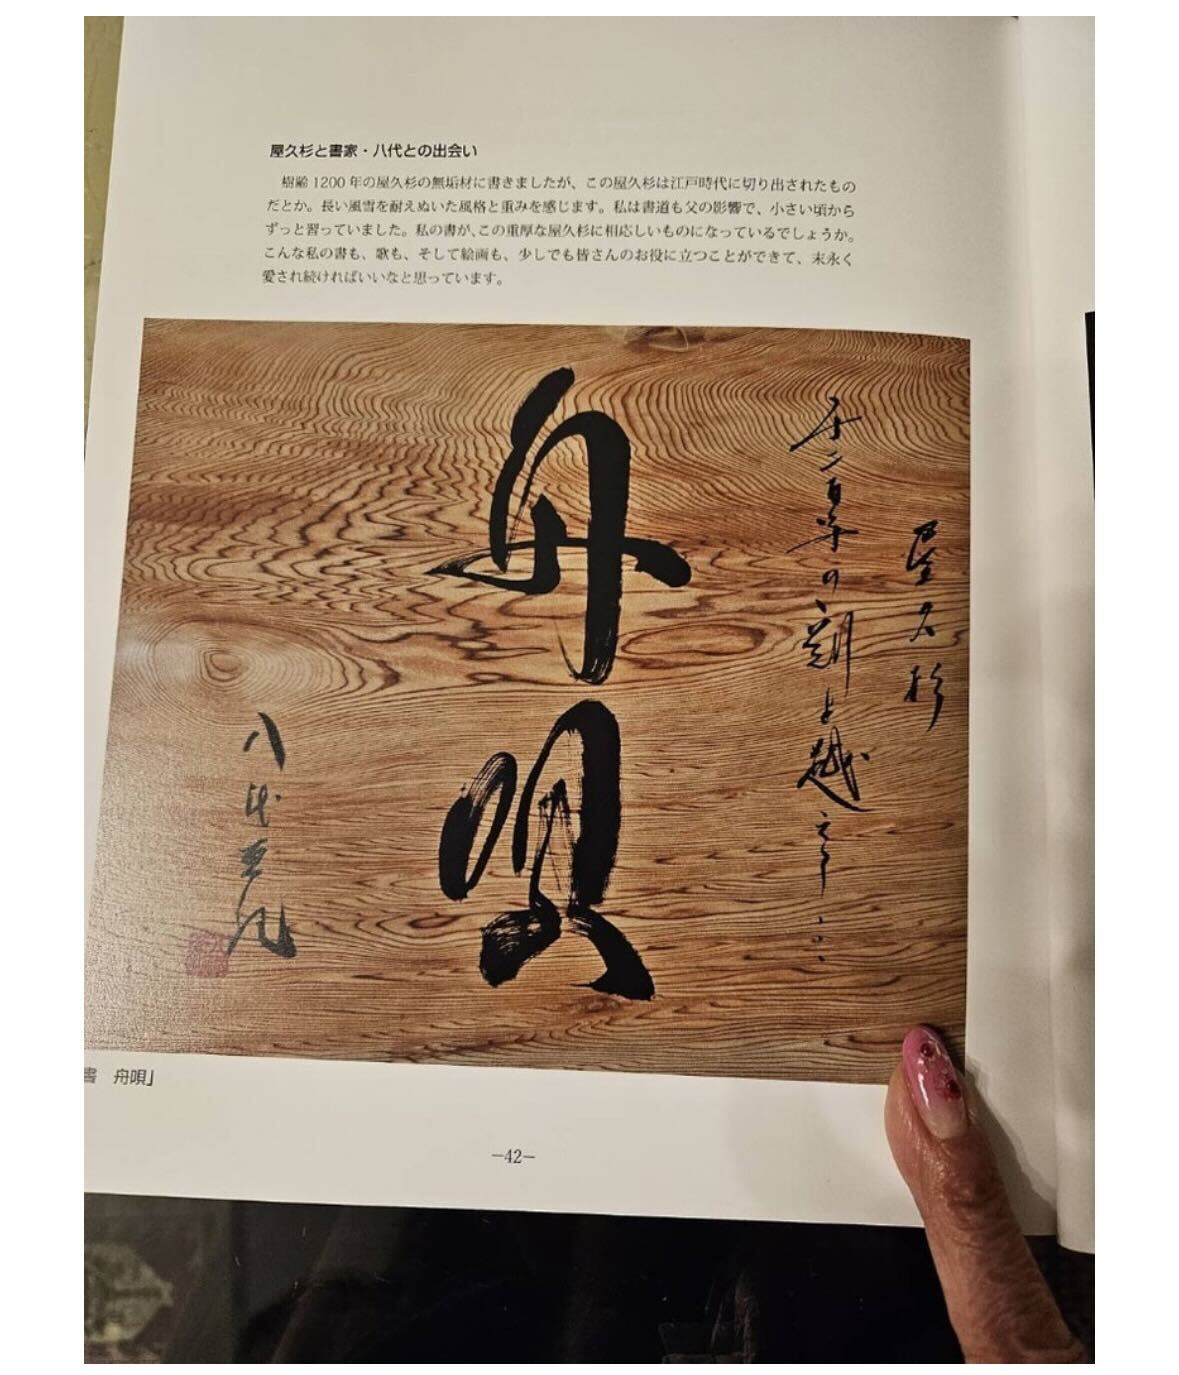 屋久杉と書家・八代との出会い
樹齢1200年の屋久杉の無垢材に書きましたが、この屋久杉は江戸時代に切り出されたもの
だとか。長い風雪を耐えぬいた風格と重みを感じます。私は書道も父の影響で、小さい頃から
ずっと習っていました。私の書が、この重厚な屋久杉に相応しいものになっているでしょうか。
こんな私の書も、歌も、そして絵画も、少しでも皆さんのお役に立つことができて、末永く
愛され続ければいいなと思っています。
屋久杉
千二百年の
越えて
舟唄
八代亜紀
書 舟唄」
−42−